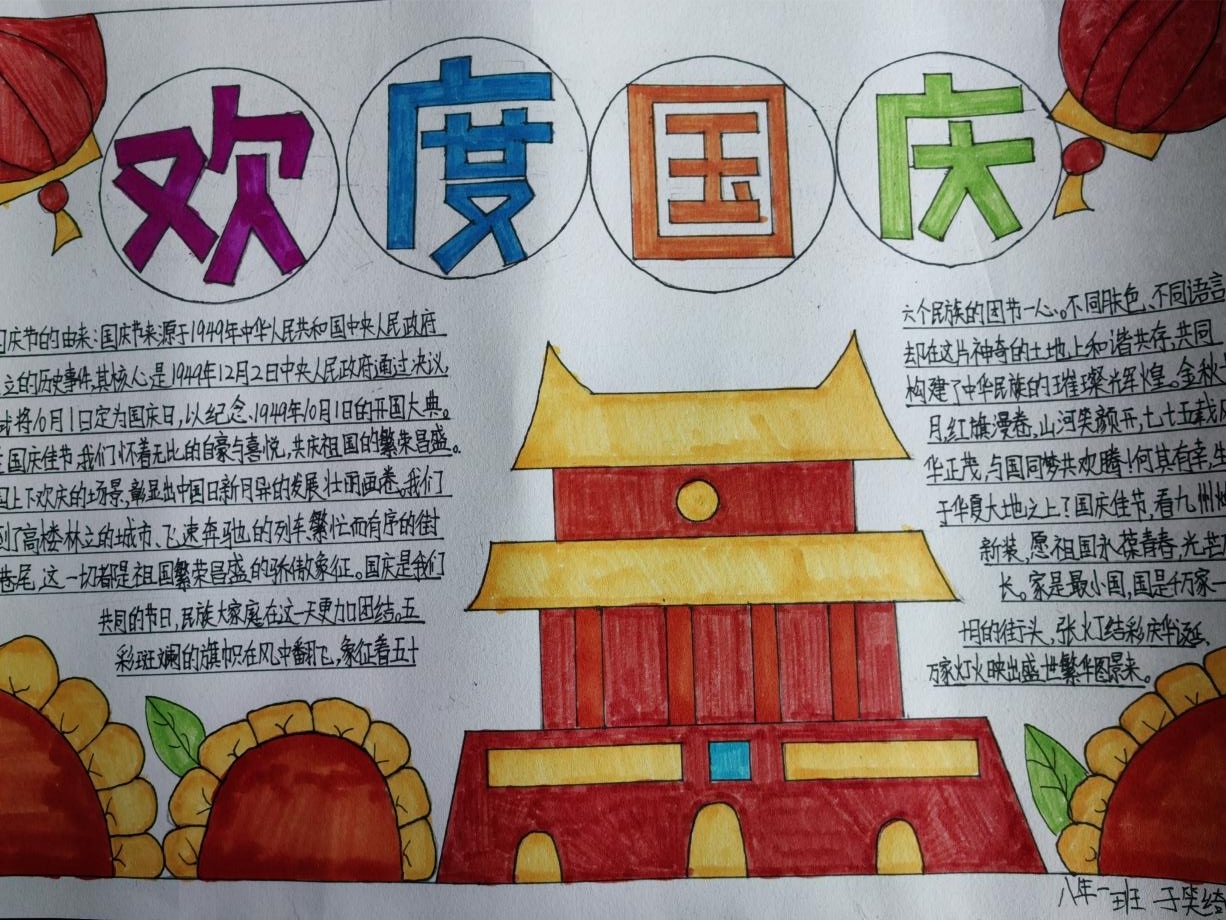 欢度国庆
庆节的由来:国庆节来源于1949年中华人民共和国中央人民政府
立的历史事件,其核心是1949年12月2日中央人民政府通过决议
将10月1日定为国庆日,以纪念1949年10月1日的开国大典。
国庆佳节我们怀着无比的自豪与喜悦,共庆祖国的繁荣昌盛。
上下欢庆的场景,彰显出中国日新月异的发展壮丽画卷。我们
到了高楼林立的城市、飞速奔驰的列车、繁忙而有序的街
巷尾,这一切都是祖国繁荣昌盛的骄傲象征。国庆是我们
共同的节日,民族大家庭在这一天更加团结。五
彩斑斓的旗帜在风中翻飞,象征着五十
六个民族的团节一心。不同肤色、不同语言
却在这片神奇的土地上和谐共存,共同
构建了中华民族的璀璨光辉煌。金秋
月,红旗漫卷,山河笑颜开,七七五载
华正茂,与国同梦共欢腾!何其有幸,生
于华夏大地之上?国庆佳节,看九州
新装,愿祖国永葆青春,光芒
长。家是最小国,国是千万家
月的街头,张灯结彩庆华诞,
万家灯火映出盛世繁华图景来。
八年一班 于笑